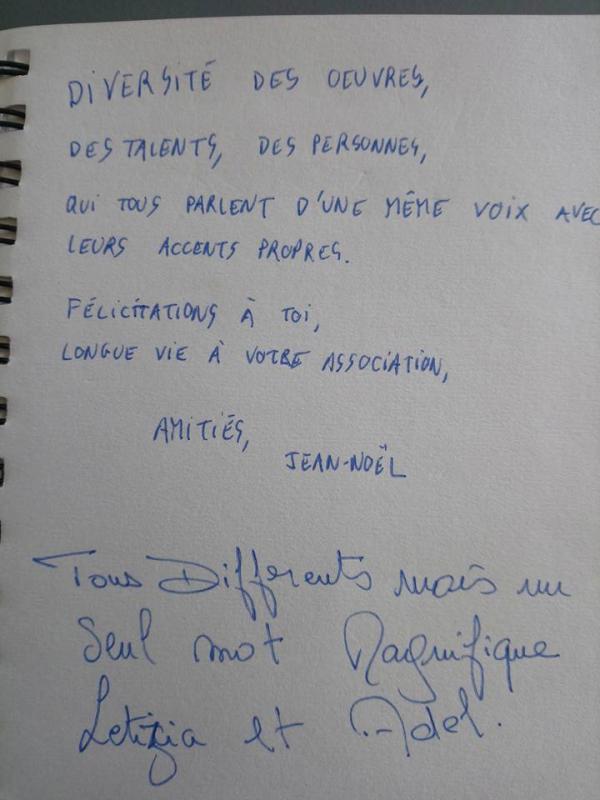 DIVERSITÉ DES OEUVRES,
DES TALENTS, DES PERSONNES,
QUI TOUS PARLENT D'UNE MÊME VOIX AVEC
LEURS ACCENTS PROPRES.
FÉLICITATIONS À TOI,
LONGUE VIE À VOTRE ASSOCIATION,
AMITIÉS,
JEAN-NOËL
Tous Differents mais un
Seul mot Magnifique
Letizia et Adel.